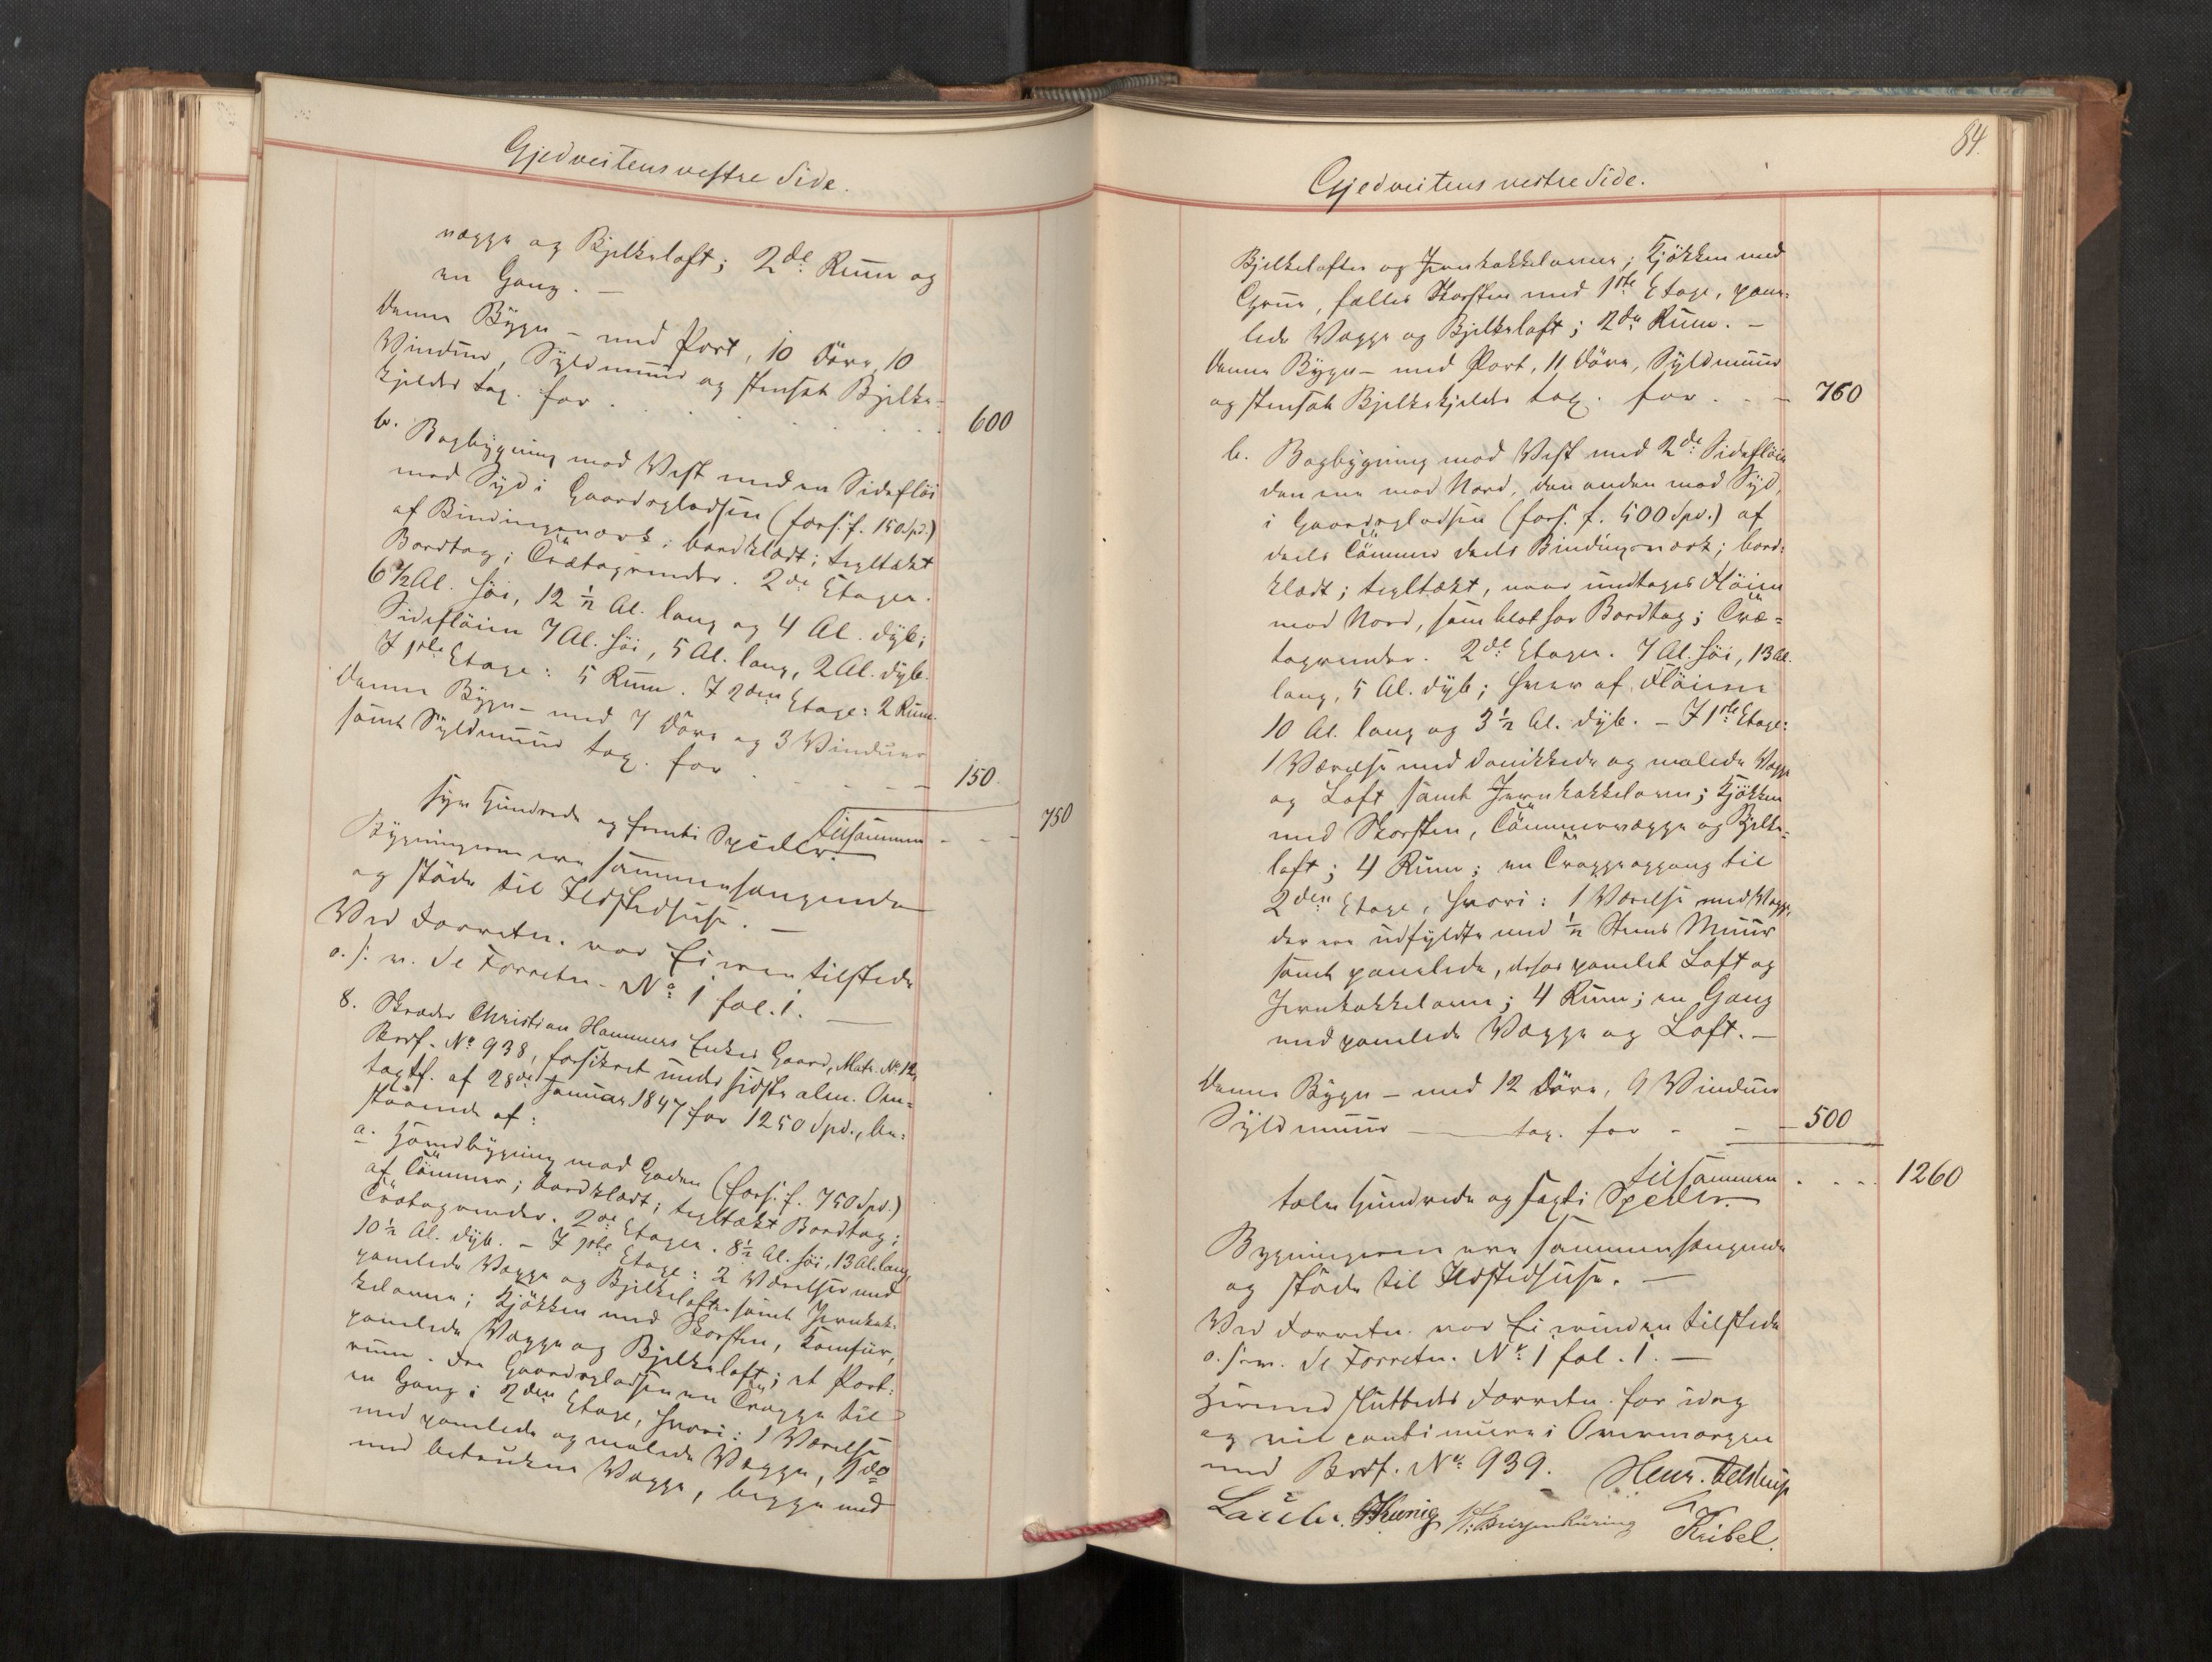 Gjedveitens vestre Side.
vægge og Bjelkeloft; 2de Rum og
en Gang. —
Denne Bygn – med Port, 10 Döre, 10
Vinduer, Syldmuur og stensat Bjelke-
kjelder tax. for . . . . . . 600
b. Bagbygning mod Vest med en Sideflöi
mod Syd i Gaardspladsen (fors. f. 150 Spd.)
af Bindingsværk; bordklædt; tegltækt
Bordtag; Trætagrender. 2de Etager.
6 1/2 Al. höi, 12 1/2 Al. lang og 4 Al. dyb;
Sideflöien 7 Al. höi, 5 Al. lang, 2 Al. dyb.
I 1ste Etage: 5 Rum. I 2den Etage: 2 Rum.
Denne Bygn – med 7 Döre og 3 Vinduer
samt Syldmuur tax. for . - - - 150.
Tilsammen - - - 750
syv Hundrede og femti Specdlr.
Bygningerne ere sammenhængende
og stöde til Ildstedhuse. —
Ved Forretn. var Eieren tilstede
o. s. v. se Forretn. No 1 fol. 1. —
8. Skræder Christian Hammers Enkes Gaard, Matr. No 12,
Brdf. No 938, forsikret under sidste alm. Om-
taxtf. af 28de Januar 1847 for 1250 Spd., be-
staaende af:
a. Hovedbygning mod Gaden (fors. f. 750 Spd.)
af Tömmer; bordklædt; tegltækt Bordtag;
Trætagrender. 2de Etager. 8 1/2 Al. höi, 13 Al. lang,
10 1/2 Al. dyb. – I 1ste Etage: 2 Værelser med
panelede Vægge og Bjelkelofter samt Jernkak-
kelovne; Kjökken med Skorsten, Komfur,
panelede Vægge og Bjelkeloft; et Port-
rum. Fra Gaardspladsen en Trappe til
en Gang i 2den Etage, hvori: 1 Værelse
med panelede og malede Vægge, 1 do
med betrukne Vægge, begge med
84.
Gjedveitens vestre Side.
Bjelkelofter og Jernkakkelovne; Kjökken med
Grue, fælles Skorsten med 1ste Etage, pane-
lede Vægge og Bjelkeloft; 2de Rum. –
Denne Bygn – med Port, 11 Döre, Syldmuur
og stensat Bjelkekjelder tax. for . - – 760
b. Bagbygning mod Vest med 2de Sideflöie
den ene mod Nord, den anden mod Syd,
i Gaardspladsen (fors. f. 500 Spd.) af
deels Tömmer deels Bindingsværk; bord-
klædt; tegltækt, naar undtages Flöien
mod Nord, som blot har Bordtag; Træ-
tagrender. 2de Etager. 7 Al. höi, 13 Al.
lang, 5 Al. dyb; hver af Flöiene
10 Al. lang og 3 1/2 Al. dyb. – I 1ste Etage:
1 Værelse med donikkede og malede Vægge
og Loft samt Jernkakkelovn; Kjökken
med Skorsten, Tömmervægge og Bjelke-
loft; 4 Rum; en Trappeopgang til
2den Etage, hvori: 1 Værelse med Vægge,
der ere udfyldte med 1/2 Steens Muur
samt panelede, dehos panelet Loft og
Jernkakkelovn; 4 Rum; en Gang
med panelede Vægge og Loft. –
Denne Bygn – med 12 Döre, 9 Vinduer
Syldmuur — tax. for - - – 500
tilsammen . . . . 1260
tolv Hundrede og sexti Specdlr.
Bygningerne ere sammenhængende
og stöde til Ildstedhuse. –
Ved Forretn. var Eierinden tilstede
o. s. v. se Forretn. No 1 fol. 1. –
Hermed sluttedes Forretn. for idag
og vil continuere i Overmorgen
med Brdf. No 939. Henr. Aelstrup
Kribel.